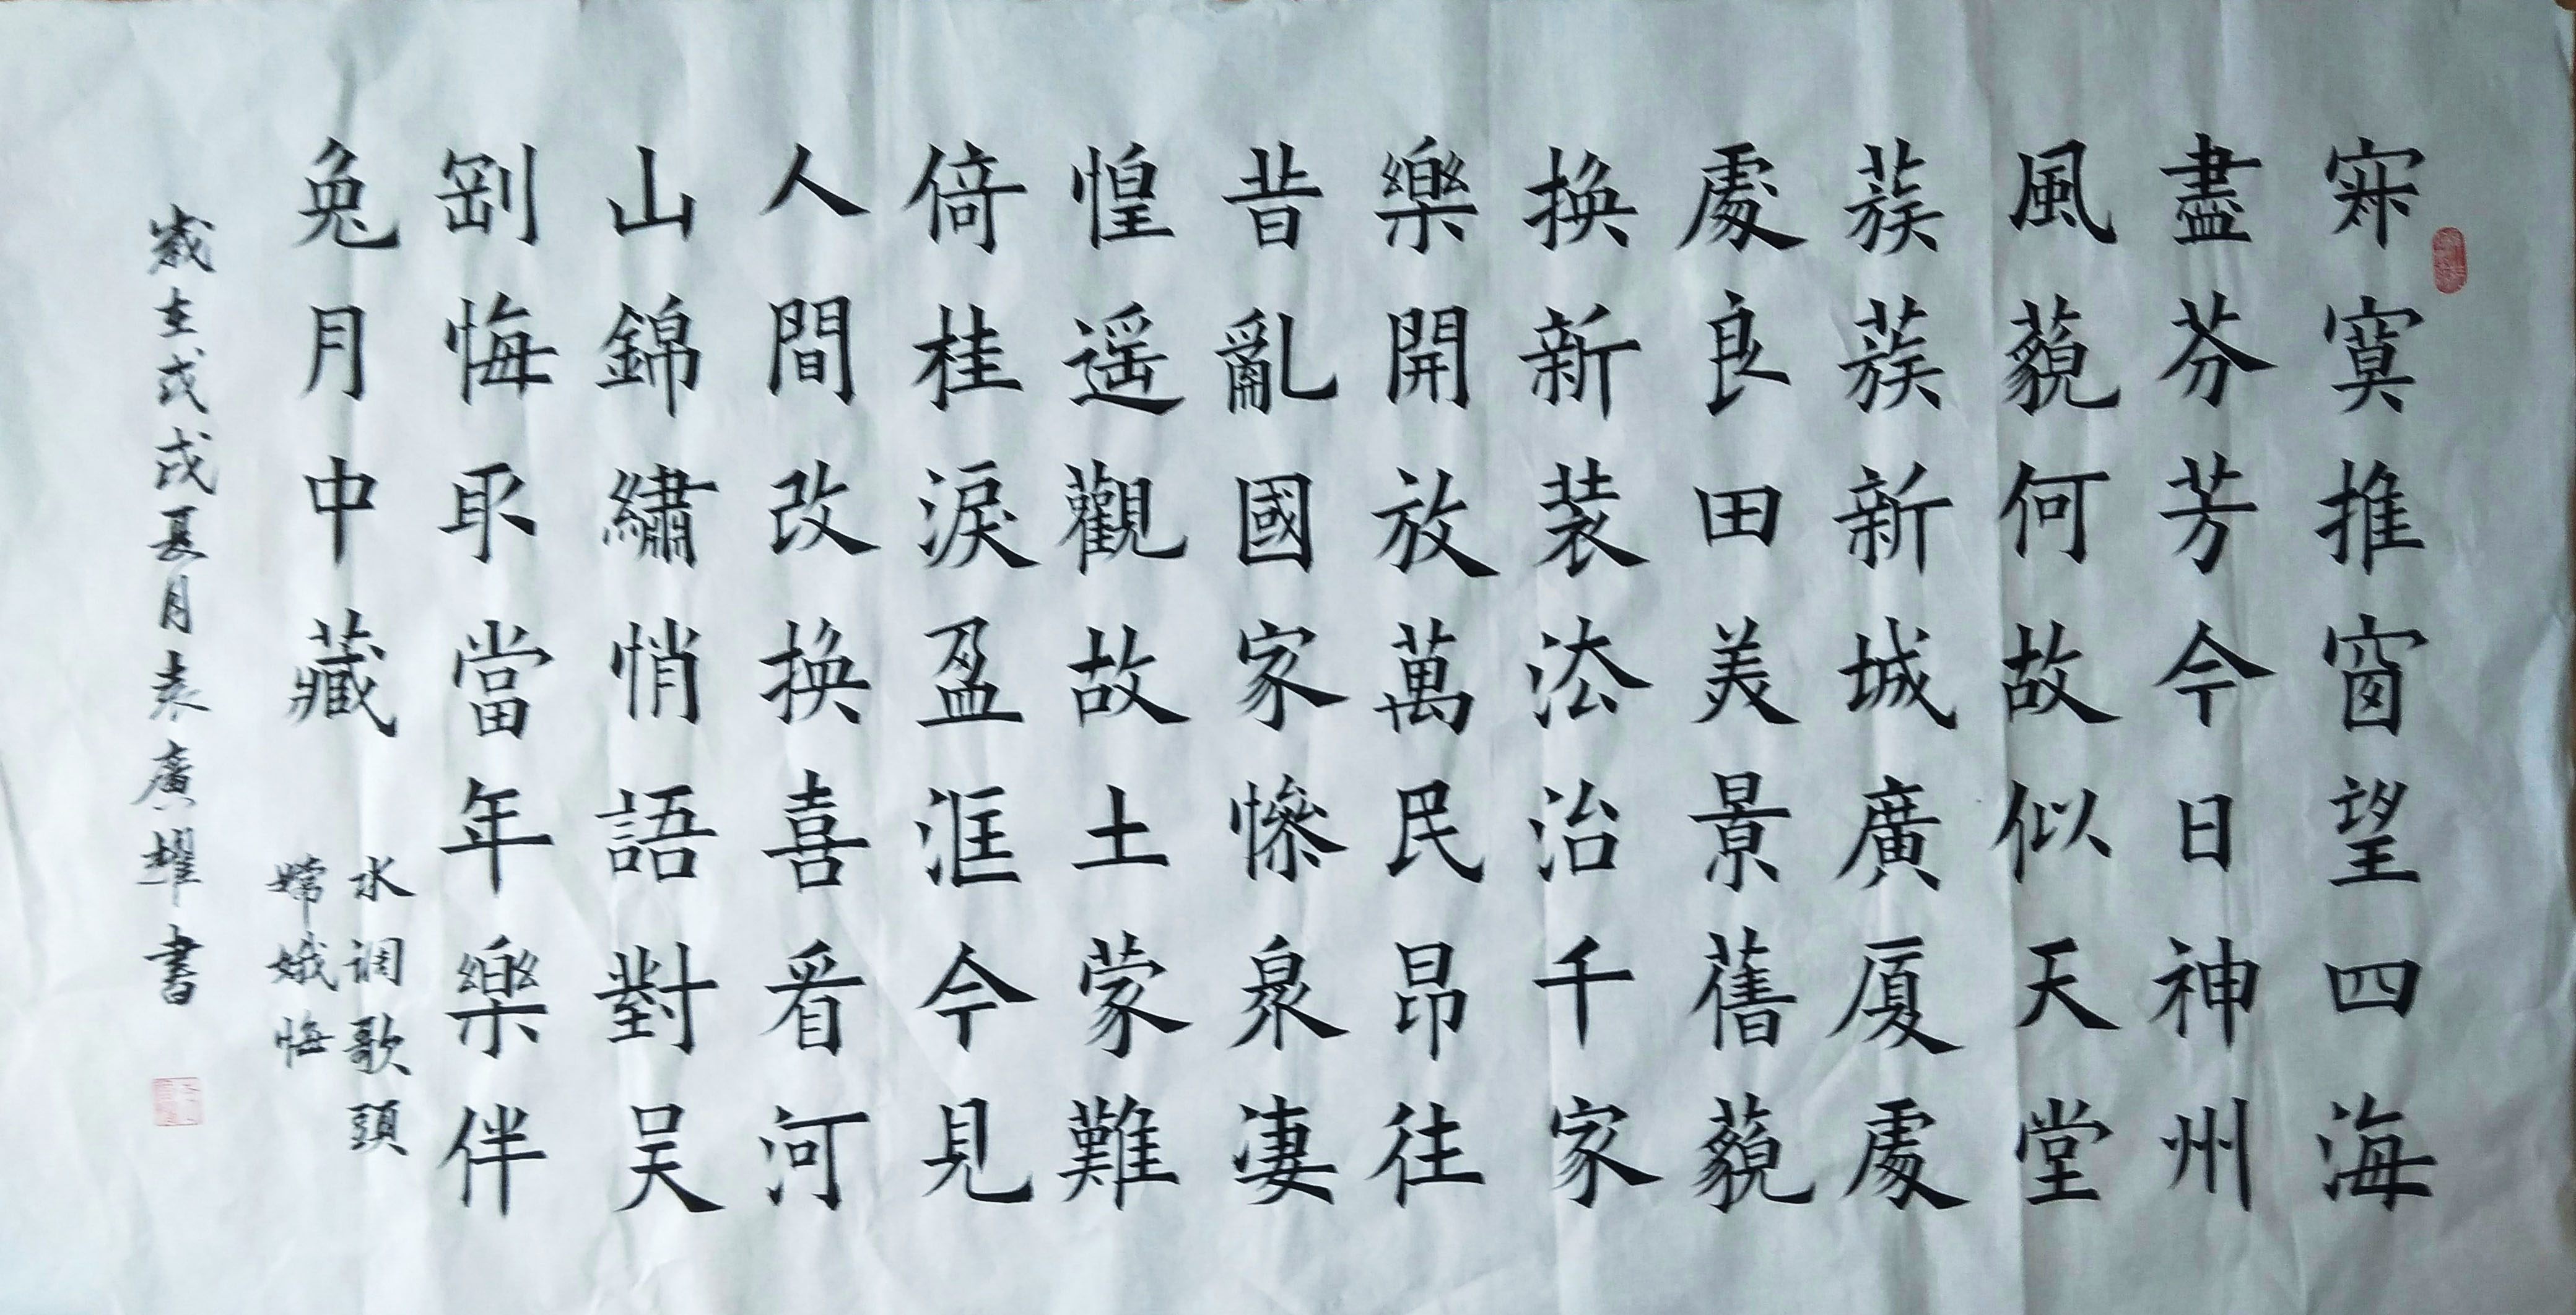 寂寞推窗望四海
盡芬芳今日神州
風藐何故似天堂
蔟蔟新城廣廈處
處良田美景舊藐
換新裝法治千家
樂開放萬民昂往
昔亂國家慘泉淒
惶遥觀故土蒙難
倚桂淚盈洭今見
人間改換喜看河
山錦繡悄語對吴
剛悔取當年樂伴
兔月中藏
水调歌頭
嫦娥悔
歲在戊戌夏月袁廣耀書